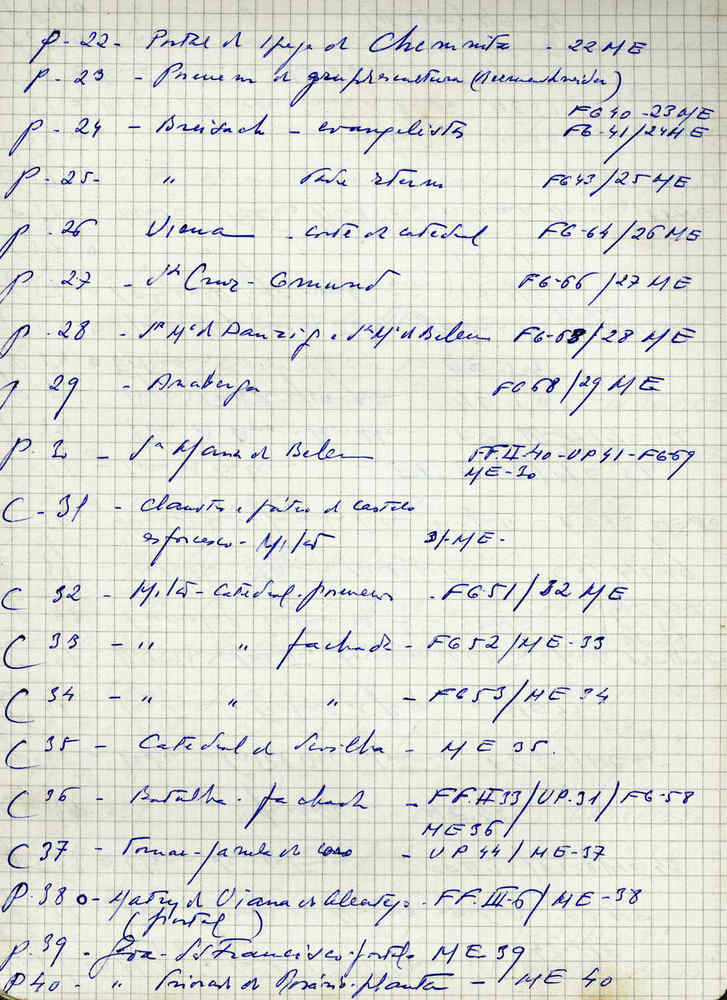 p-22- Portal d Igreja d Chemnitz - 22 ME
p-23 - Pormenor d
FG 40 - 23 ME
p-24 - Breisach - evangelistas FG-41/24 ME
p-25- " FG 43/25 ME
p-26 Viena - corte d catedral FG-64/26 ME
p-27 - Sta Cruz - Gmund FG-66/27 ME
p-28 - Sta Ma d Danzig e Sta Ma d Belem FG-68/28 ME
29 - Anaberga FG 68/29 ME
p. 30 - Sta Maria d Belem FF.II-40-UP 41-FG-59
ME-30
C-31 - Claustro e pátio d castelo
esforcesco - Milão 31-ME-
C 32 - Milão - Catedral - pormenor - FG 51/32 ME
C 33 - " " fachada - FG 52/ME-33
C 34 - " " " - FG 53/ME 34
C 35 - Catedral d Sevilha - ME 35.
C 36 - Batalha - fachada - FF.II 33/UP.31/FG-58
ME 36
C 37 - Tomar - janela d coro - UP 44/ME-37
P.38 - Matriz d Viana do Alentejo - FF.III-6/ME-38
(portal)
p.39 - Evora - S. Francisco portal ME 39
P 40 - " d Rosário - planta - ME 40